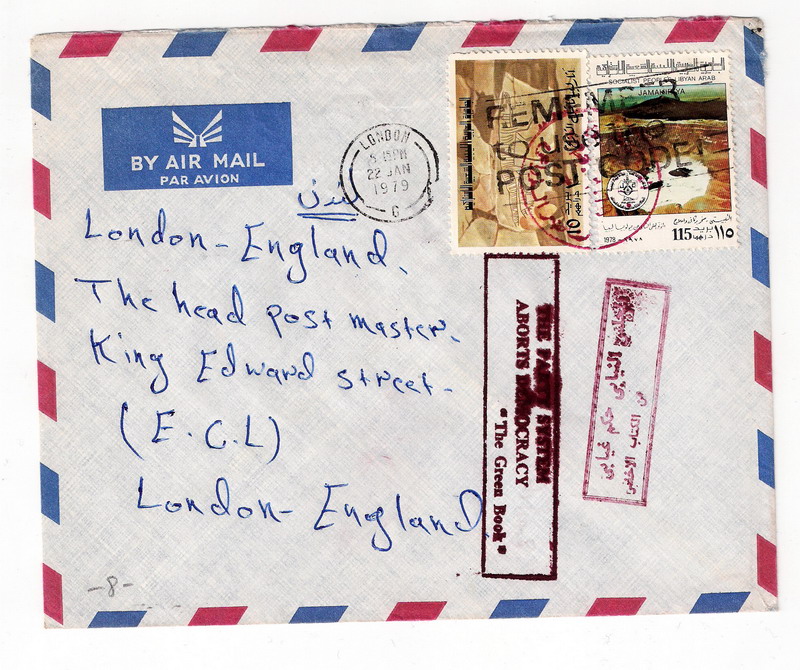 BY AIR MAIL
PAR AVION
LONDON
22 JAN
1979
REMEMBER
TO USE THE
POST CODE
SOCIALIST PEOPLE'S LIBYAN ARAB
JAMAHIRIYA
1978 - ١٩٧٨
115 ١١٥
بريد
لندن
London - England.
The head post master.
King Edward street -
(E.C.L)
London - England
THE PARTY SYSTEM
ABORTS DEMOCRACY
"The Green Book"
التمثيل النيابي حكم غيابي
من الكتاب الأخضر
-8-